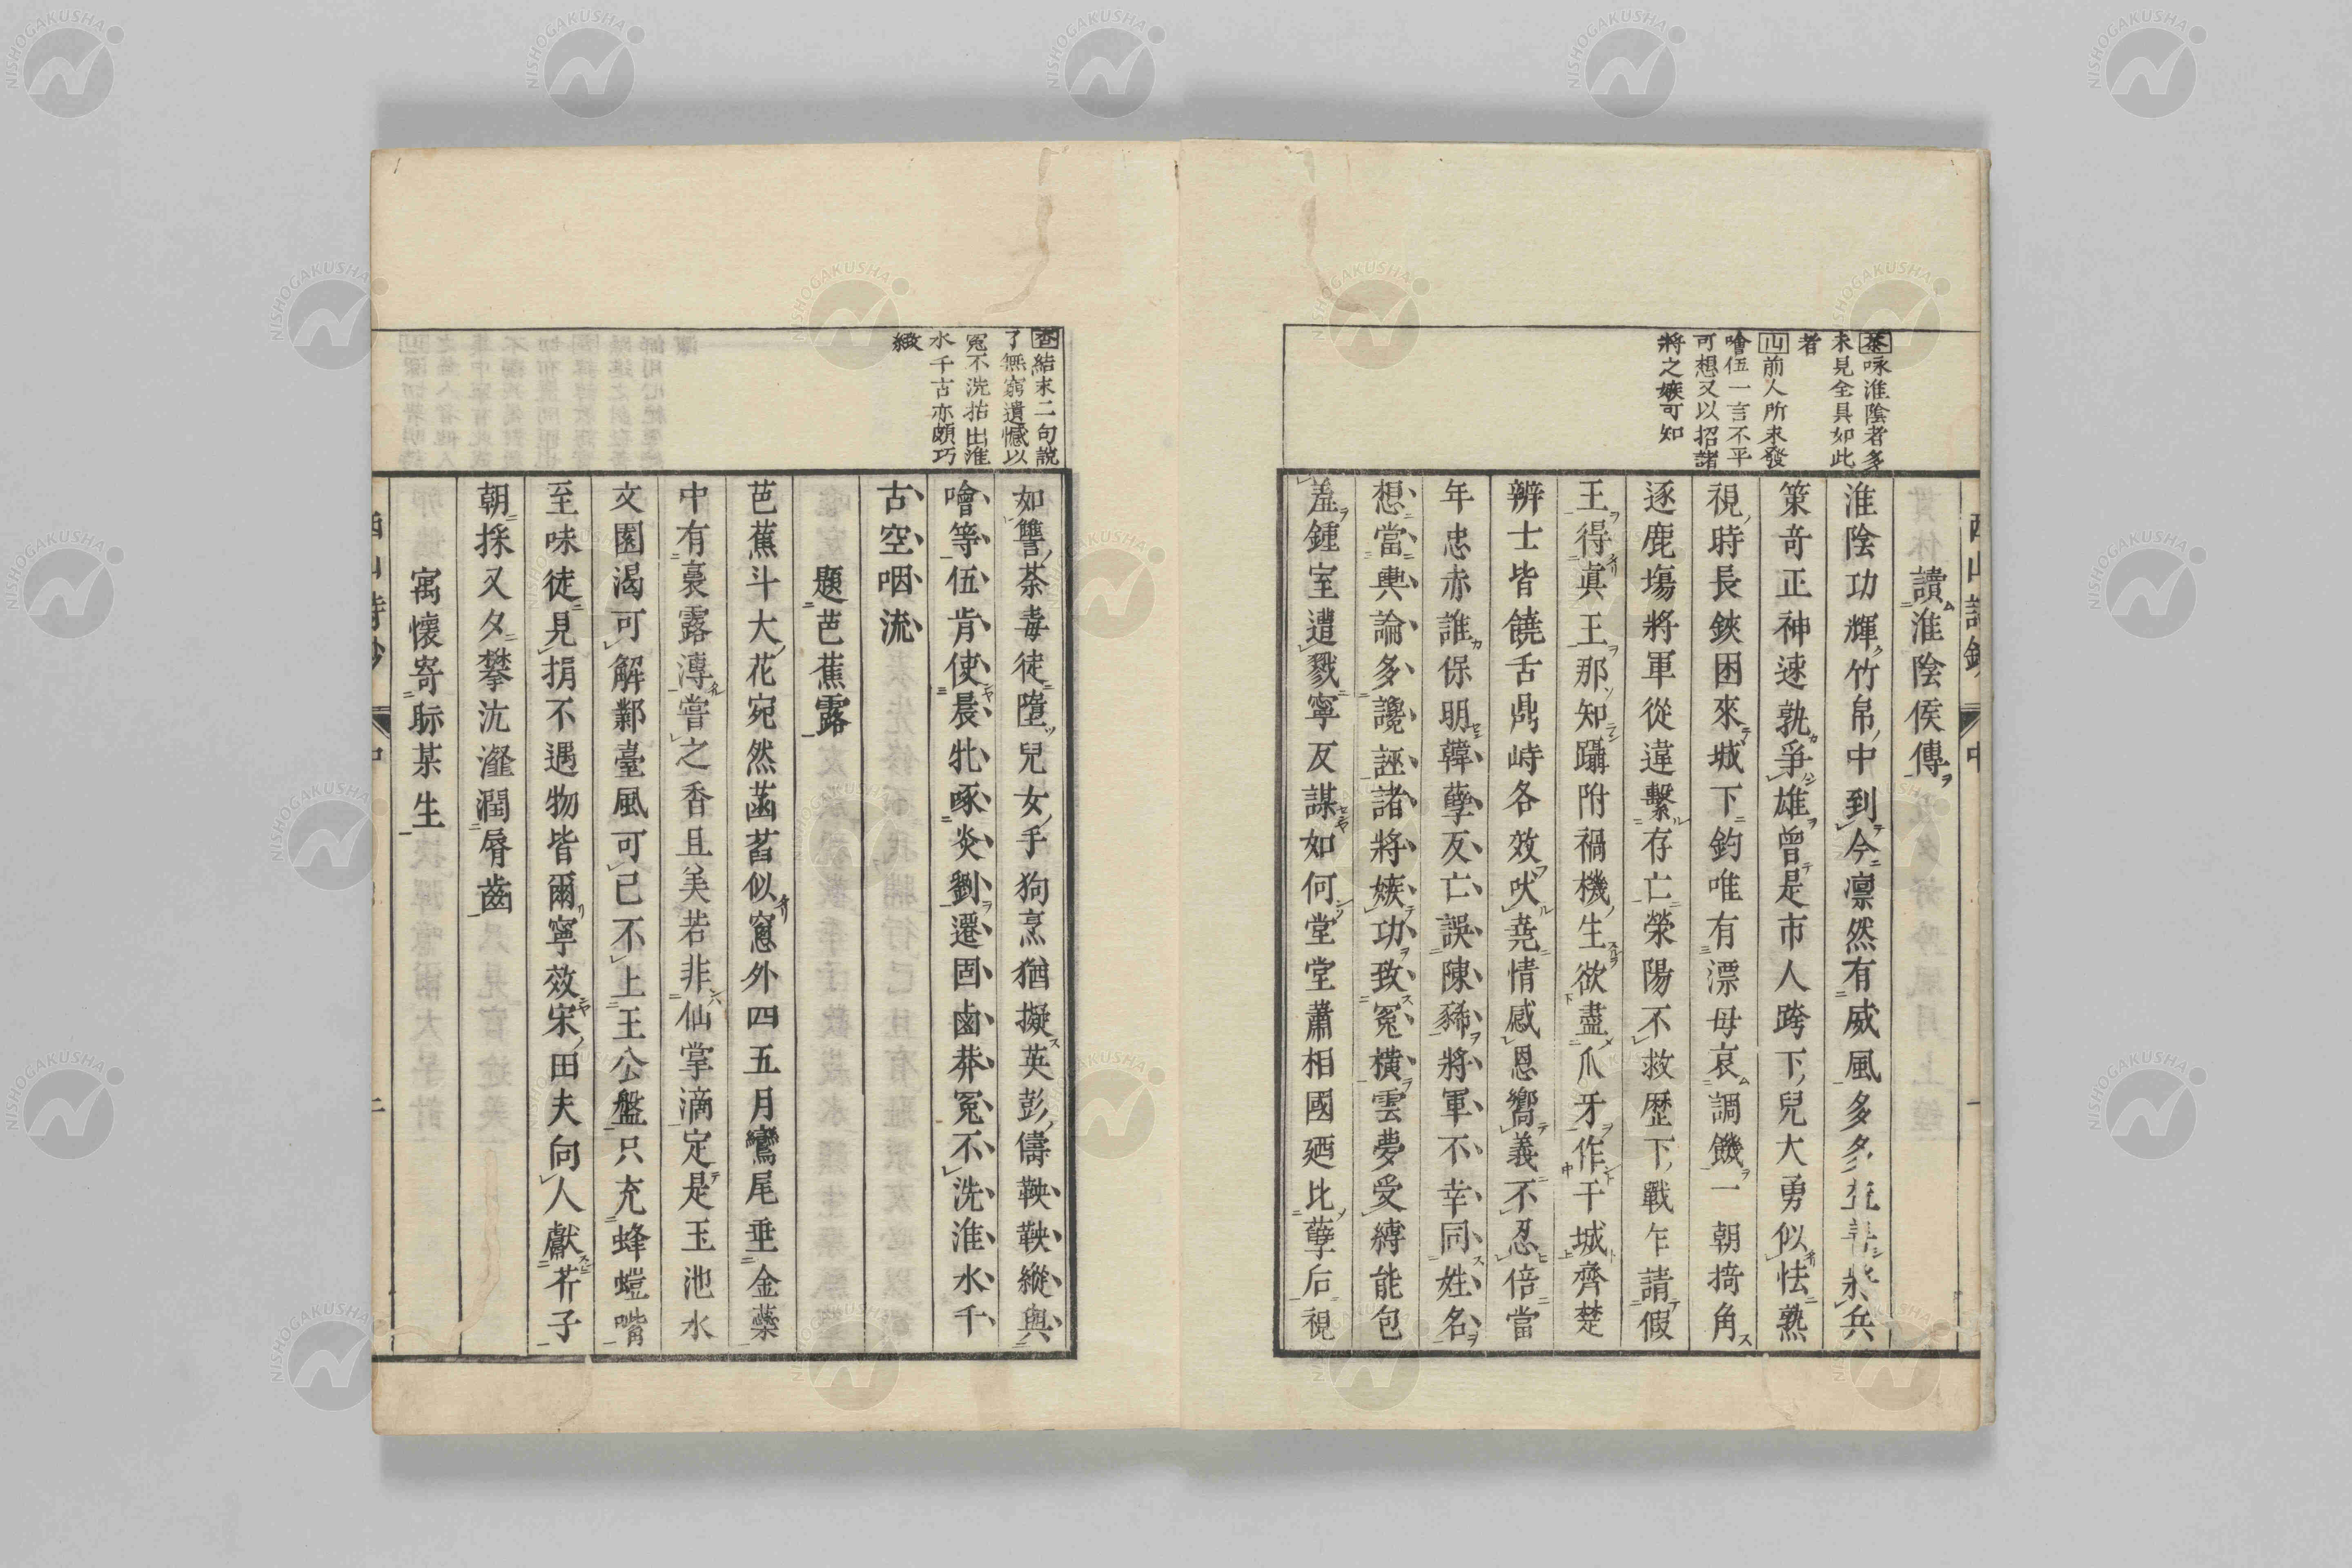 茶咏淮陰者多
未見全具如此
者
山前人所未發
噲伍一言不平
可想又以招諸
將之嫉可知
讀淮陰侯傳
淮陰功輝竹帛中到今凛然有威風多多益善將兵
策奇正神速孰爭雄曾是市人跨下兒大勇似怯熟
視時長鋏困來城下釣唯有漂母哀調饑一朝掎角
逐鹿塲將軍從違繫存亡榮陽不救歷下戰乍請假
王得眞王那知躡附禍機生欲盡爪牙作干城齊楚
辨士皆饒舌鼎峙各效吠堯情感恩嚮義不忍倍當
年忠赤誰保明韓孽反亡誤陳豨將軍不幸同姓名
想當輿論多讒誣諸將嫉功致冤橫雲夢受縛能包
羞鍾室遭戮寧反謀如何堂堂蕭相國廼比孽后視
杏結末二句說
了無窮遺憾以
冤不洗拈出淮
水千古亦頗巧
緻
如讐荼毒徒墮兒女手狗烹猶擬英彭儔鞅鞅縱與
噲等伍肯使晨牝啄炎劉遷固鹵莽冤不洗淮水千
古空咽流
題芭蕉露
芭蕉斗大花宛然菡萏似窻外四五月鸞尾垂金蘂
中有裛露漙嘗之香且美若非仙掌滴定是玉池水
文園渴可解鄴臺風可已不上王公盤只充蜂螘嘴
至味徒見捐不遇物皆爾寧效宋田夫向人獻芥子
朝採又夕攀沆瀣潤脣齒
寓懷寄际某生